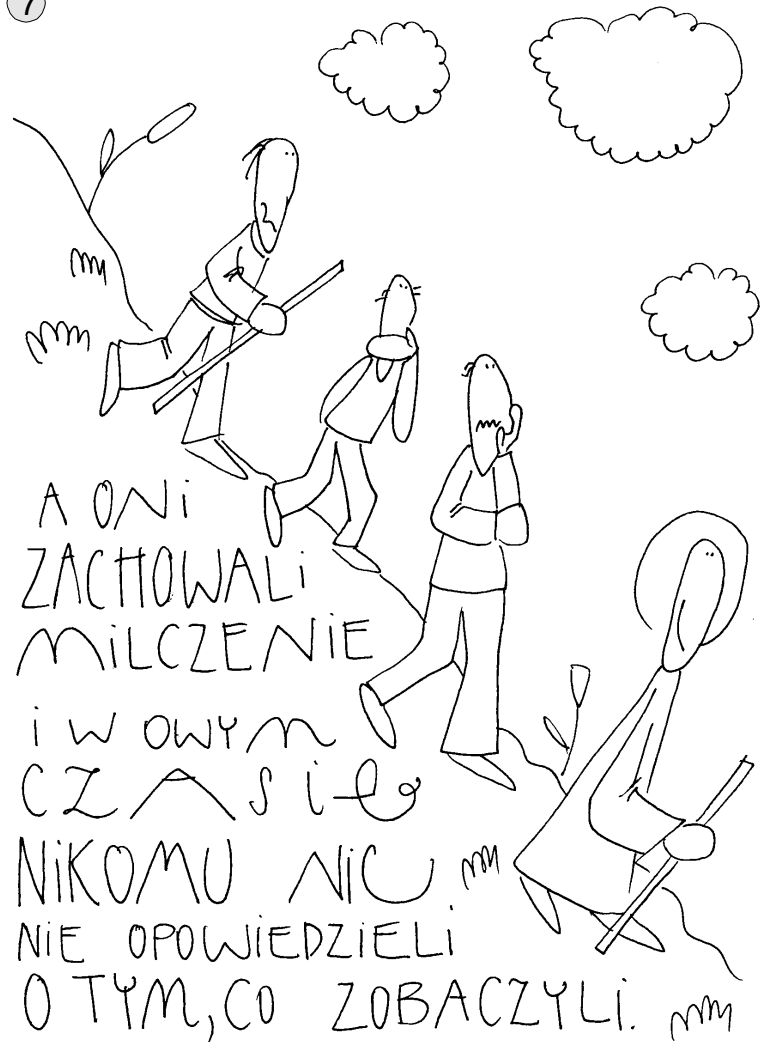 7
A ONi
ZACHOWALi
MiLCZENiE
i W OWYM
CZASiE
NiKOMU NiC
NiE OPOWiEDZiELi
O TYM, CO ZOBACZYLi.